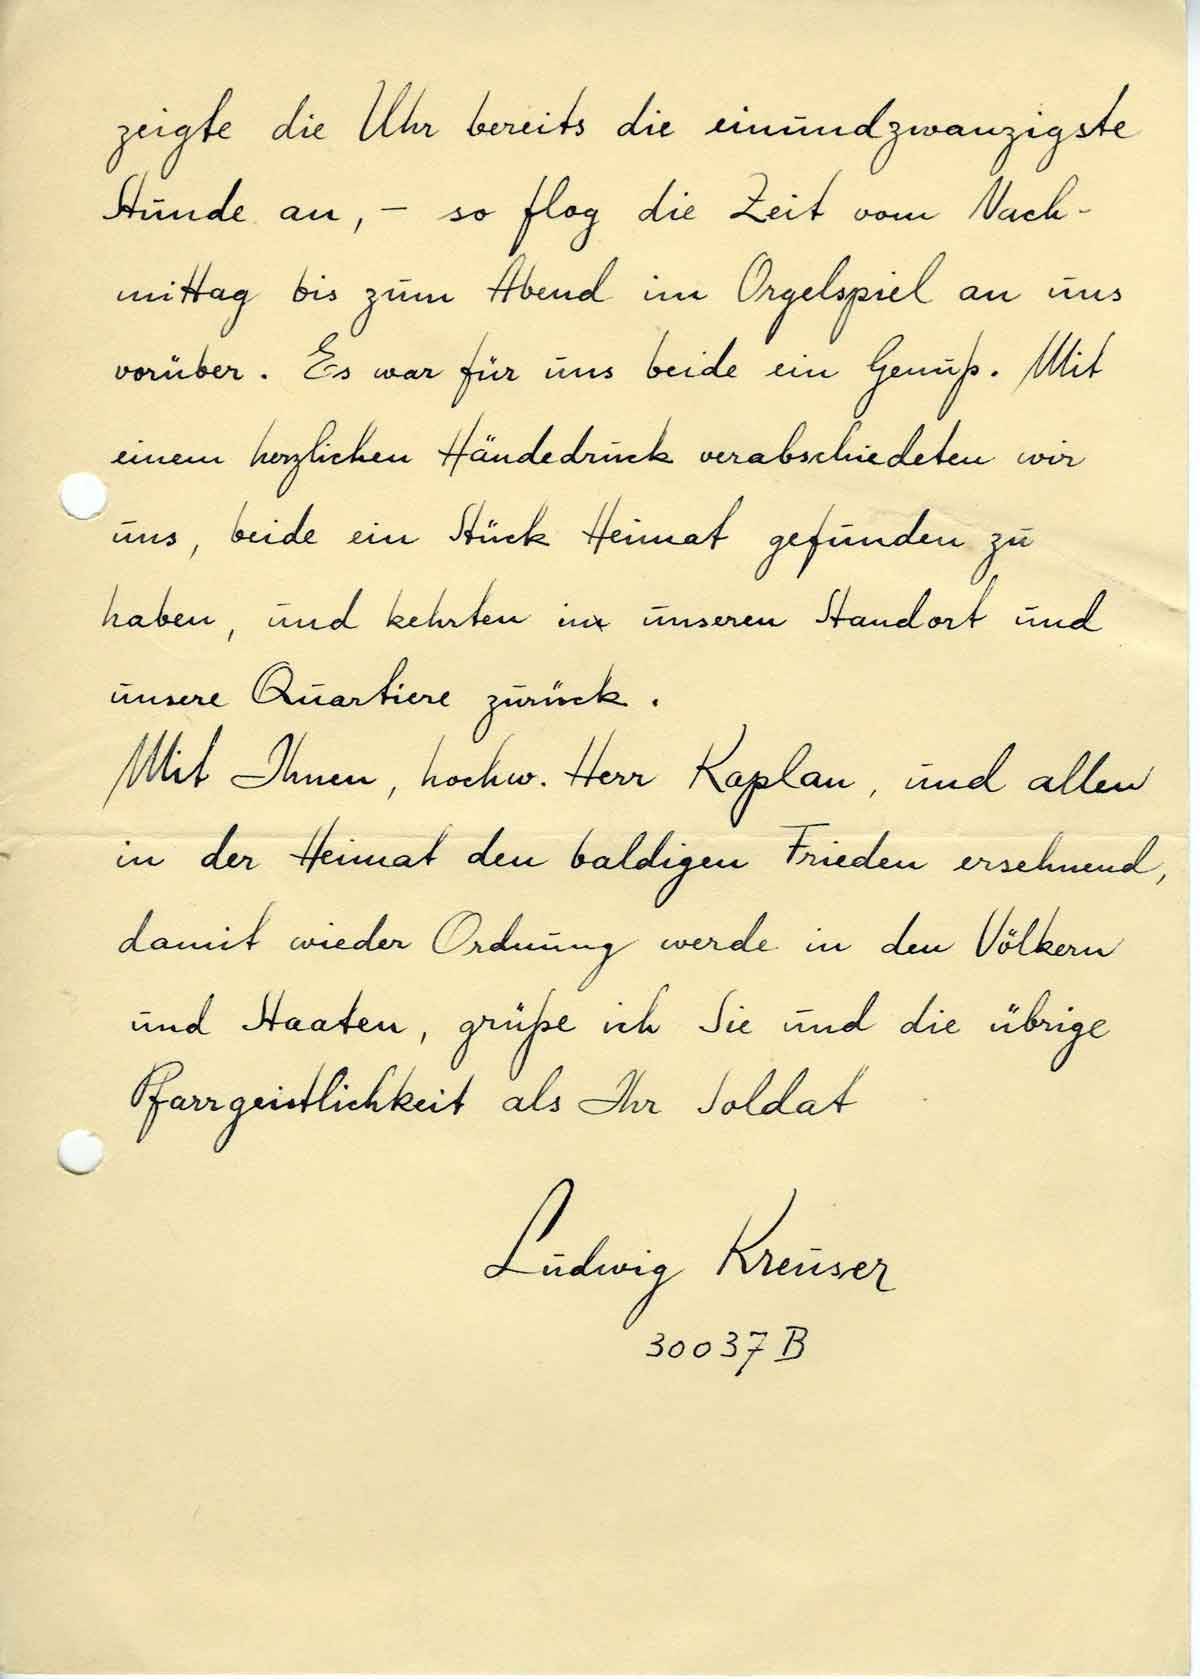 zeigte die Uhr bereits die einundzwanzigste
Stunde an, – so flog die Zeit vom Nach-
mittag bis zum Abend im Orgelspiel an uns
vorüber. Es war für uns beide ein Genuß. Mit
einem herzlichen Händedruck verabschiedeten wir
uns, beide ein Stück Heimat gefunden zu
haben, und kehrten in unseren Standort und
unsere Quartiere zurück.
Mit Ihnen, hochw. Herr Kaplan, und allen
in der Heimat den baldigen Frieden ersehnend,
damit wieder Ordnung werde in den Völkern
und Staaten, grüße ich Sie und die übrige
Pfarrgeistlichkeit als Ihr Soldat
Ludwig Kreuser
30037 B